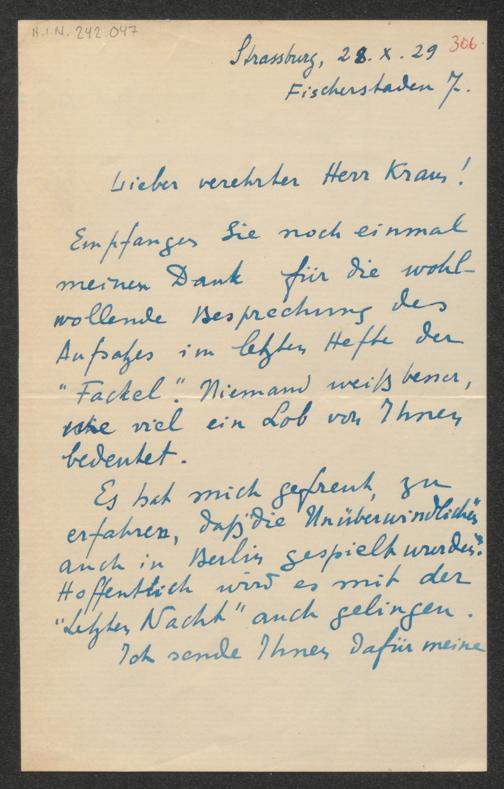 H.I.N. 242.047
306
Strassburg, 28. X. 29
Fischerstaden 7.
Lieber verehrter Herr Kraus!
Empfangen Sie noch einmal
meinen Dank für die wohl-
wollende Besprechung des
Aufsatzes im letzten Hefte der
"Fackel". Niemand weiß besser,
wie viel ein Lob von Ihnen
bedeutet.
Es hat mich gefreut, zu
erfahren, daß "die Unüberwindlichen"
auch in Berlin gespielt wurden.
Hoffentlich wird es mit der
"Letzten Nacht" auch gelingen.
Ich sende Ihnen dafür meine